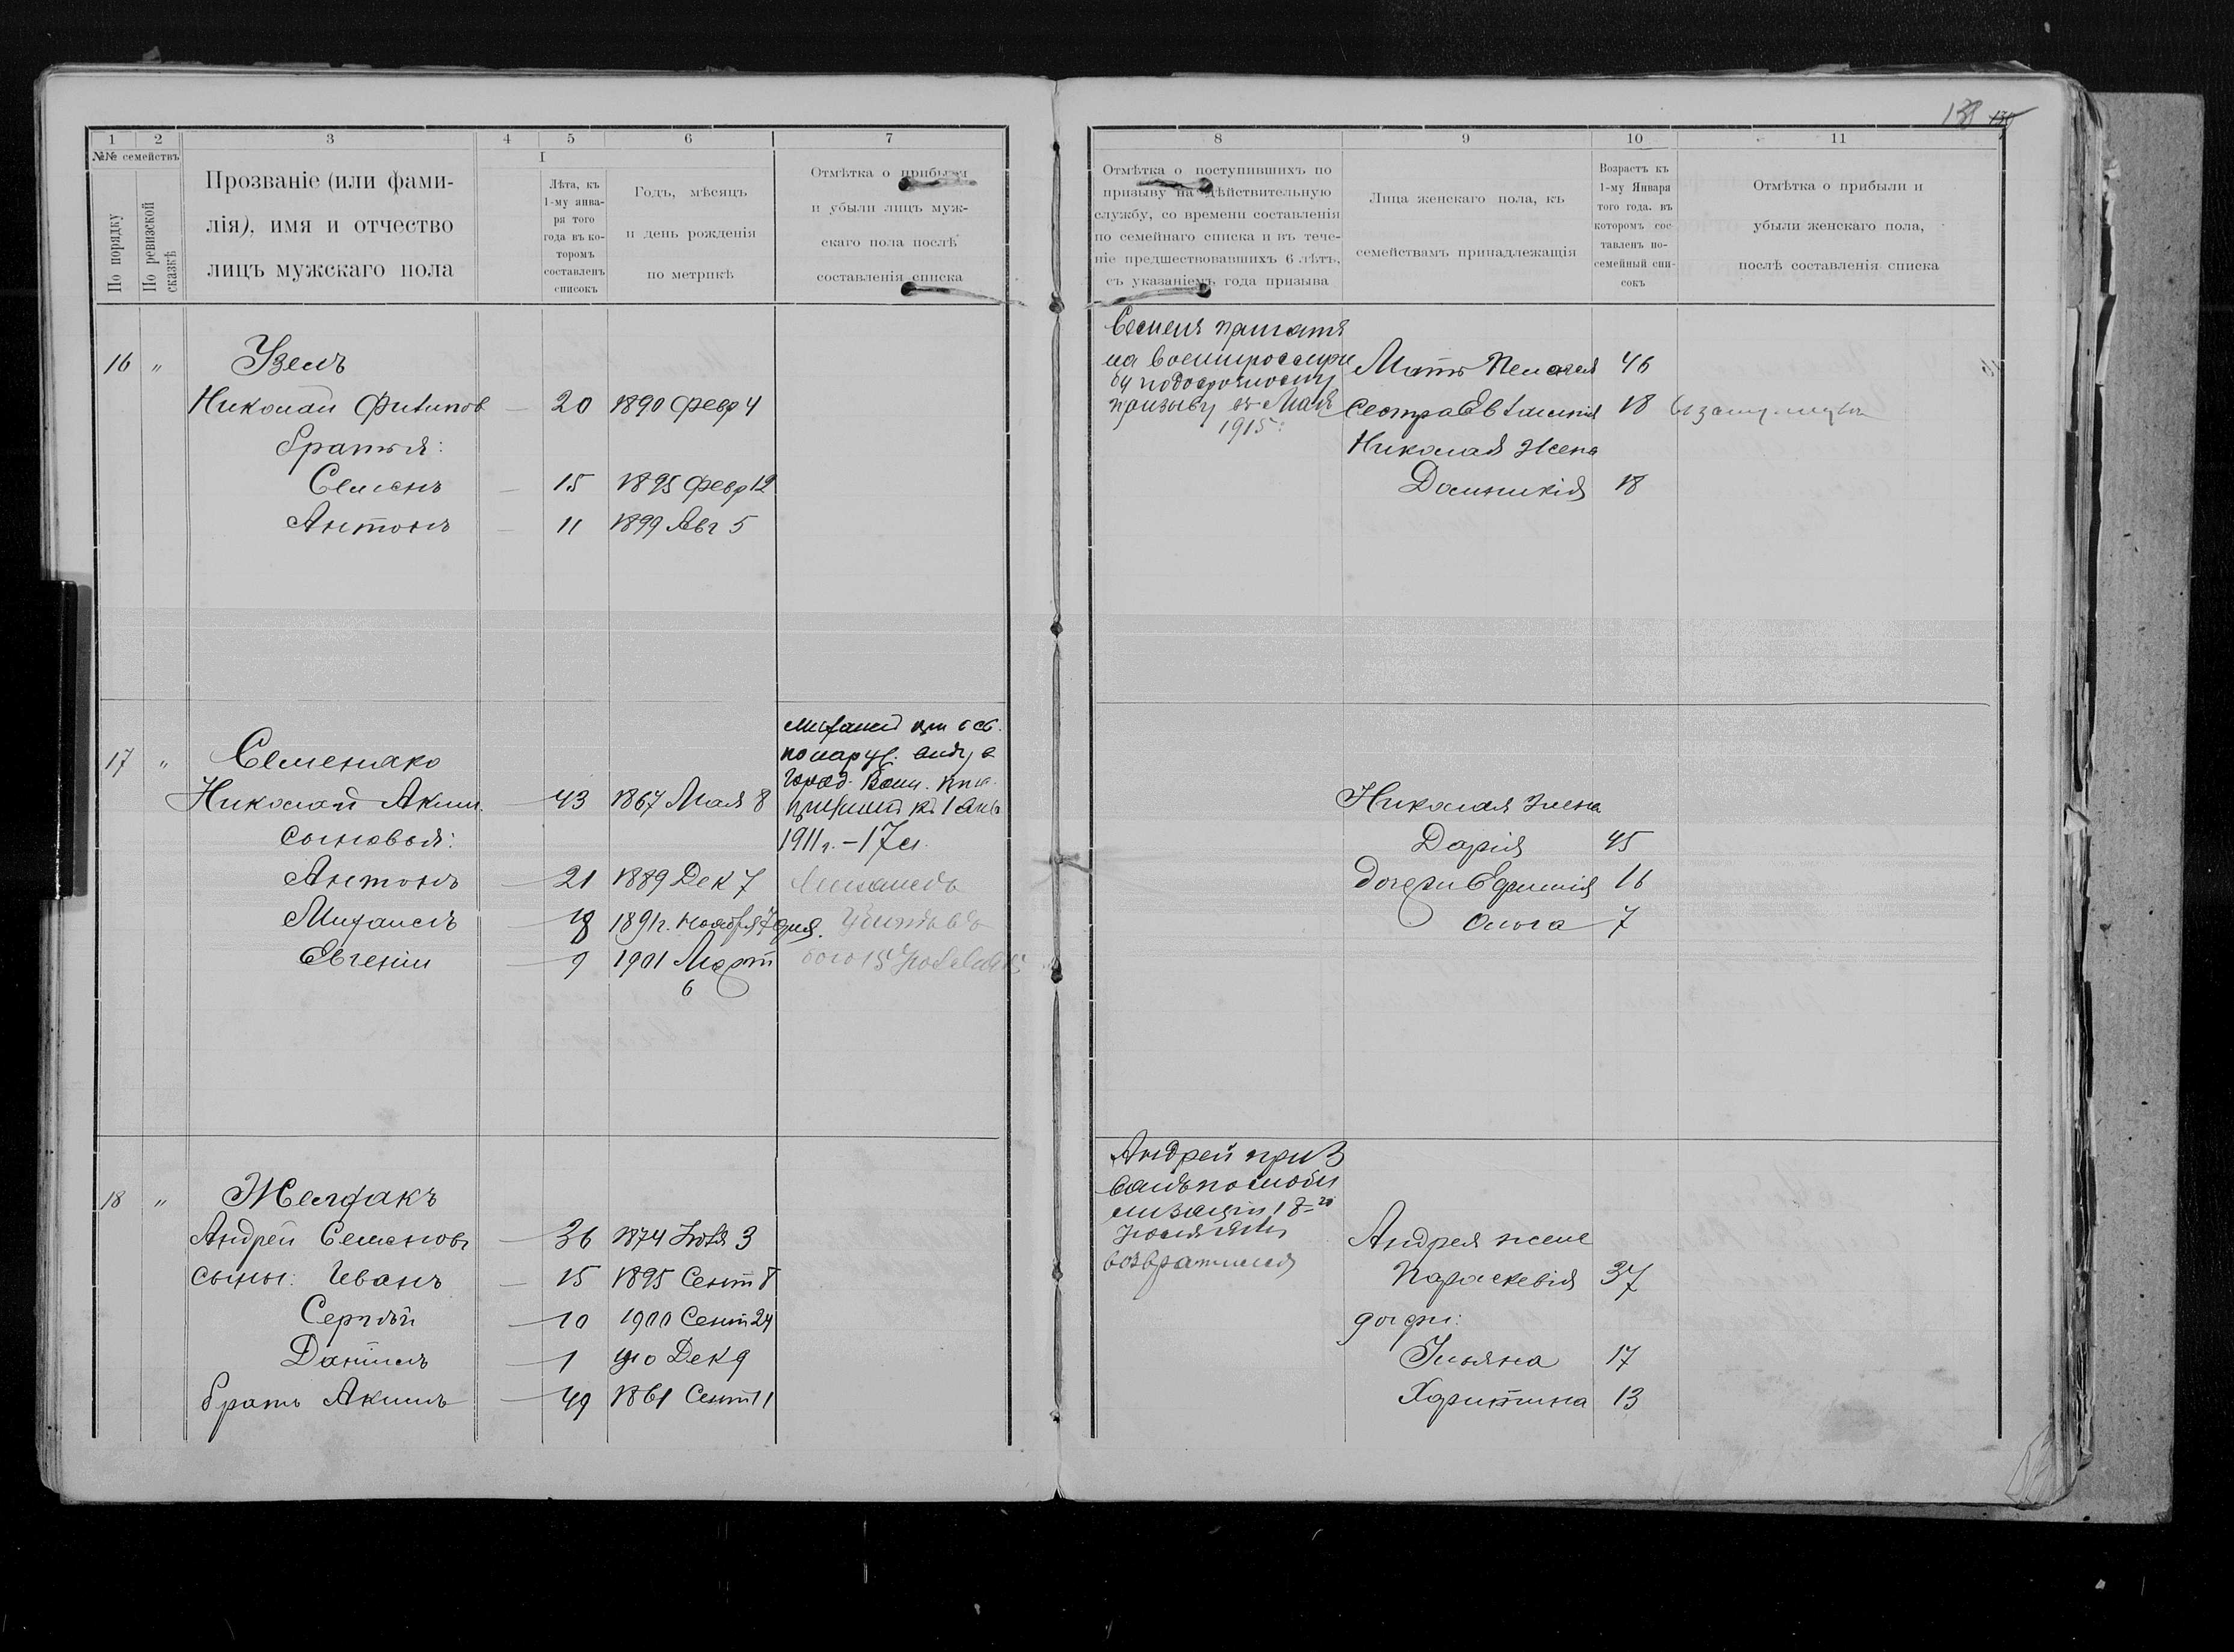 138
1 2 3 4 5 6 7
№№ семействъ
По порядку
По ревизской сказкѣ
Прозваніе (или фами-
лія), имя и отчество
лицъ мужскаго пола
I
Лѣта, къ
1-му янва-
ря того
года въ ко-
торомъ
составленъ
списокъ
Годъ, мѣсяцъ
и день рожденія
по метрикѣ
Отмѣтка о прибыли
и убыли лицъ муж-
скаго пола послѣ
составленія списка
16 "
Узелъ
Николай Филипов — 20 1890 Февр 4
братья:
Семенъ — 15 1895 Февр 12
Антонъ — 11 1899 Авг 5
17 "
Семеняко
Николай Аким. — 43 1867 Мая 8
сыновья:
Антонъ — 21 1889 Дек 7
Михаилъ — 18 1891 г. Ноября 7 дня.
Евгеній — 9 1901 Март
6
Михаил
по нар
1911 г. – 17 л.
18 "
Желфакъ
Андрей Семеновъ — 36 1874 Іюля 3
сыны: Иванъ — 15 1895 Сент 8
Сергѣй — 10 1900 Сент 24
Даніилъ — 1 910 Дек 9
братъ Акимъ — 49 1861 Сент 11
8 9 10 11
Отмѣтка о поступившихъ по
призыву на дѣйствительную
службу, со времени составленія
по семейнаго списка и въ тече-
ніе предшествовавшихъ 6 лѣтъ,
съ указаніемъ года призыва
Лица женскаго пола, къ
семействамъ принадлежащія
Возрастъ къ
1-му Января
того года. въ
которомъ сос-
тавленъ по-
семейный спи-
сокъ
Отмѣтка о прибыли и
убыли женскаго пола,
послѣ составленія списка
Семенъ принятъ
на
бу по досрочному
призыву въ Маѣ
1915:
Мать Пелагея 46
Сестра Евфимія 18
Николая жена
Доминикія 18
Николая жена
Дарія 45
дочери Ефимія 16
Ольга 7
Андрей приз
ванъ по моби
лизаціи 18-го
возвратился
Андрея жена
Параскевія 37
дочери:
Ульяна 17
Харитина 13